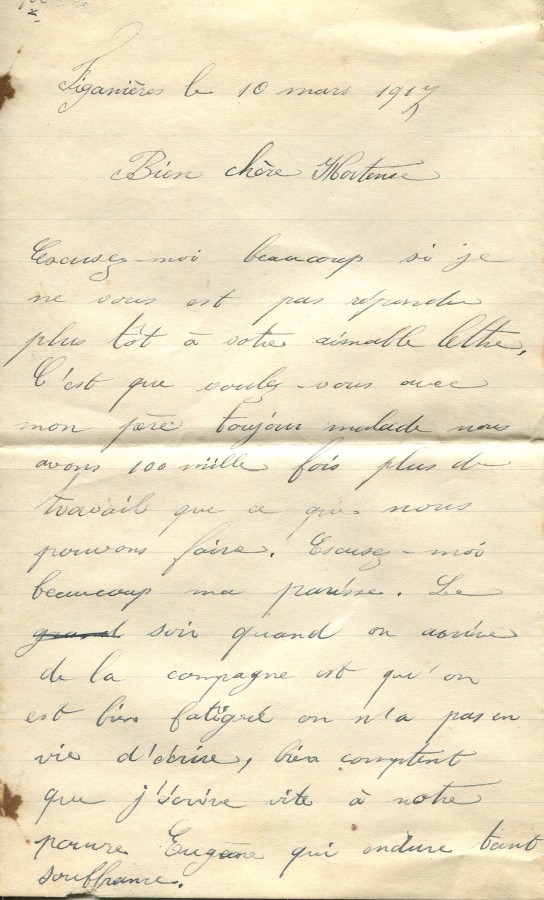 Figanières le 10 mars 1917
Bien chère Hortense
Escusez-moi beaucoup si je
ne vous est pas répondu
plus tôt à votre aimable lettre.
C'est que voulez-vous avec
mon père toujour malade nous
avons 100 mille fois plus de
travail que ce que nous
pouvons faire. Escusez-moi
beaucoup ma parèsse. Le
grand soir quand on arrive
de la compagne est qu'on
est bien fatigué on n'a pas en
vie d'écrire, bien comptent
que j'écrive vite à notre
pauvre Eugène qui endure tant
souffrance.